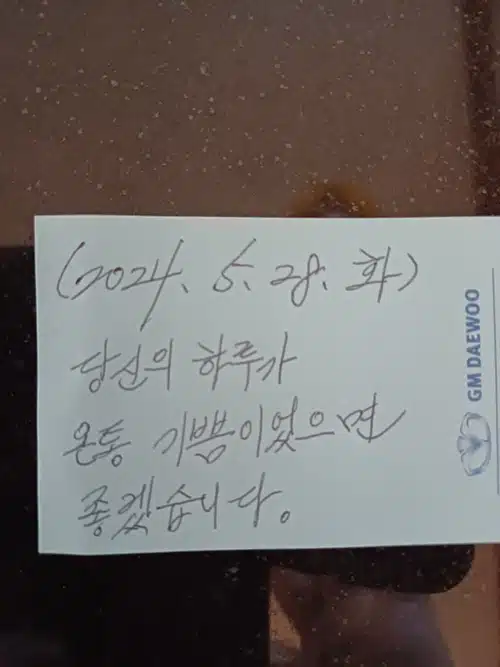 (2024. 5. 28. 화)
당신의 하루가
온통 기쁨이었으면
좋겠습니다.
GM DAEWOO